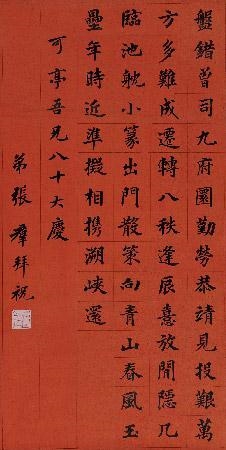 盤錯曾司九府圜勤勞恭靖見投艱萬
方多難成遷轉八秩逢辰憙放閒隱几
臨池躭小篆出門散策向青山春風玉
壘年時近準擬相携溯峽還
可亭吾兄八十大慶
弟張羣拜祝